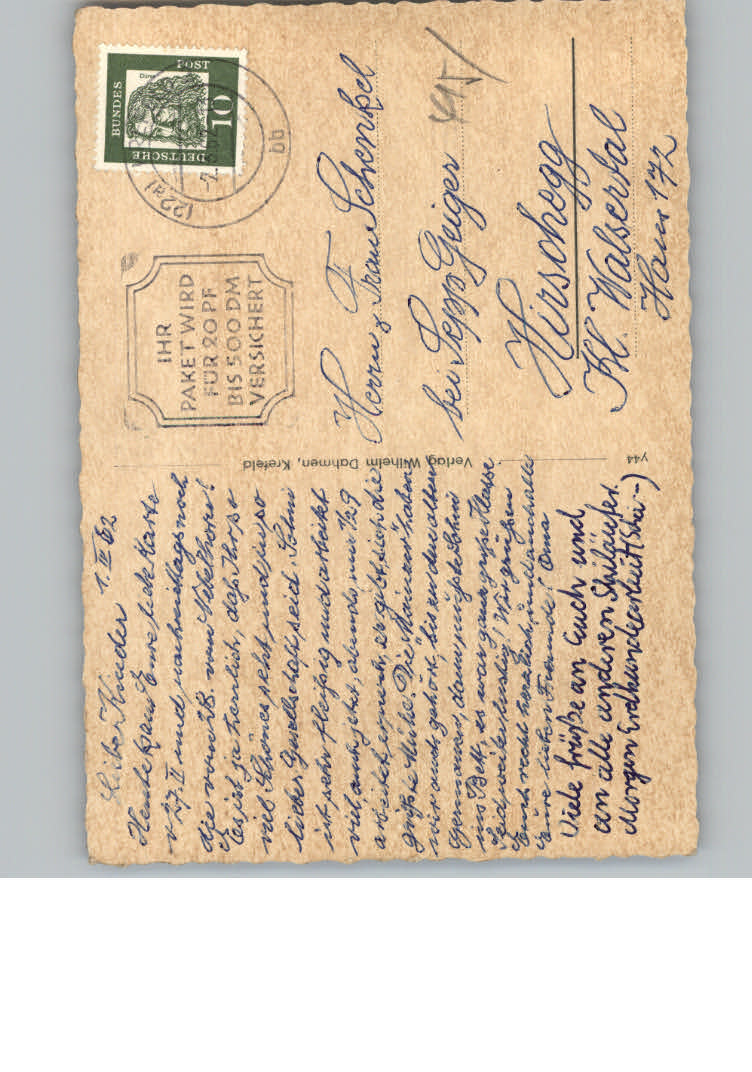 1. III 62
Liebe Kinder
Heute kam Eure liebe Karte
v 27. II und nachmittags noch
die vom 28. vom
Es ist ja herrlich, daß Ihr so
viel Schönes seht und in so
lieber Gesellschaft seid.
ist sehr fleißig und arbeitet
viel auch jetzt, abends um 1/2 9
arbeitet er noch, er gibt sich die
größte Mühe. Die "Mainzer" haben
wir auch gehört, bis zu den alten
Germanen, dann mußte
ins Bett, es war ganz große Klasse
Seid weiter lustig! Wir grüßen
Euch recht herzlich, und auch alle
Eure lieben Freunde! Oma
Viele Grüße an Euch und
an alle anderen Skiläufer.
Morgen Erdkundearbeit
Verlag Wilhelm Dahmen, Krefeld
Y44
IHR
PAKET WIRD
FÜR 20 PF
BIS 500 DM
VERSICHERT
(22a)
bb
DEUTSCHE
BUNDES
POST
10
Herrn u Frau F Schenkel
bei Sepp Geiger
Hirschegg
Kl. Walsertal
Haus 172